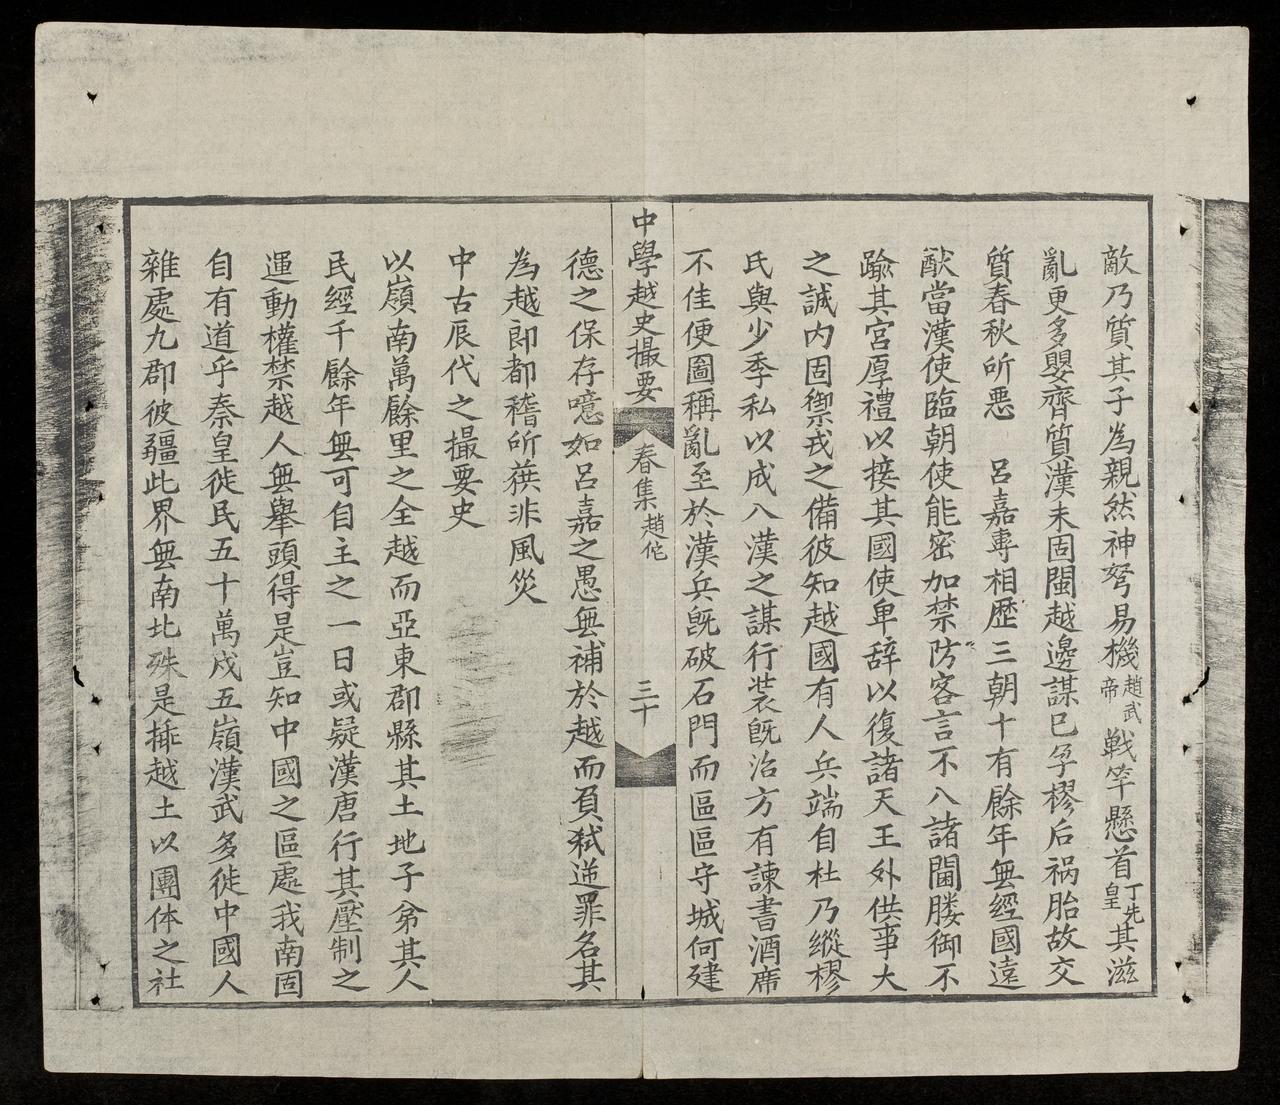 敵乃質其子為親然神弩易機趙武帝戦竿懸首丁先皇其滋
亂更多嬰齊質漢未固閩越邊謀已孕樛后禍胎故交
質春秋所惡　呂嘉專相歷三朝十有餘年無經國遠
猷當漢使臨朝使能密加禁防客言不八諸閫媵御不
踰其宮厚禮以接其國使卑辞以復諸天王外供事大
之誠内固禦戎之備彼知越國有人兵端自杜乃縱樛
氏與少季私以成八漢之謀行装既治方有諫書酒席
不佳便圖稱亂至於漢兵既破石門而區區守城何建
中學越史撮要　春集趙佗　三十
德之保存噫如呂嘉之愚無補於越而負弑逆罪名其
為越郎都稽所獲非風災
中古辰代之撮要史
以嶺南萬餘里之全越而亞東郡縣其土地子弟其人
民經千餘年無可自主之一日或疑漢唐行其壓制之
運動權禁越人無舉頭得是豈知中國之區處我南固
自有道乎秦皇徙民五十萬戍五嶺漢武多徙中國人
雜處九郡彼疆此界無南北殊是捶越土以團体之社